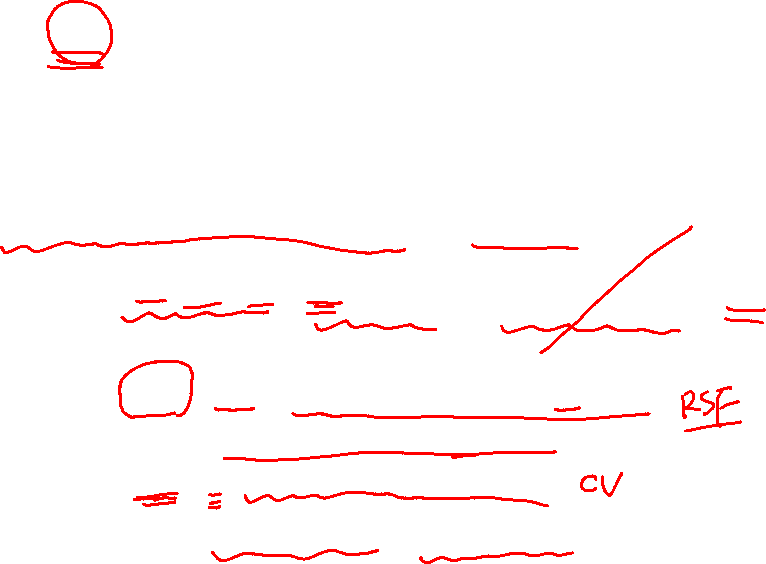 RSE
CV